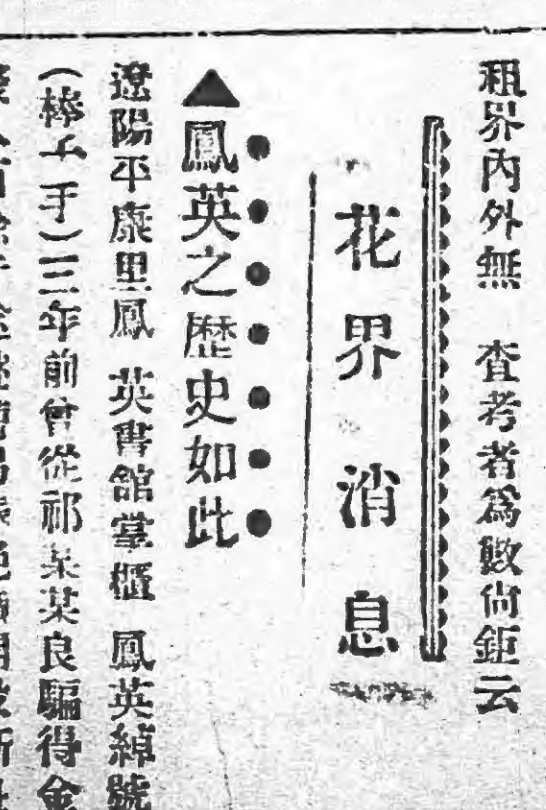 租界内外無 查考者爲數尙鉅云
花界消息
▲鳳英之歷史如此
遼陽平康里鳳英書館掌櫃鳳英綽號
(棒子手)三年前曾從祁某某良騙得金